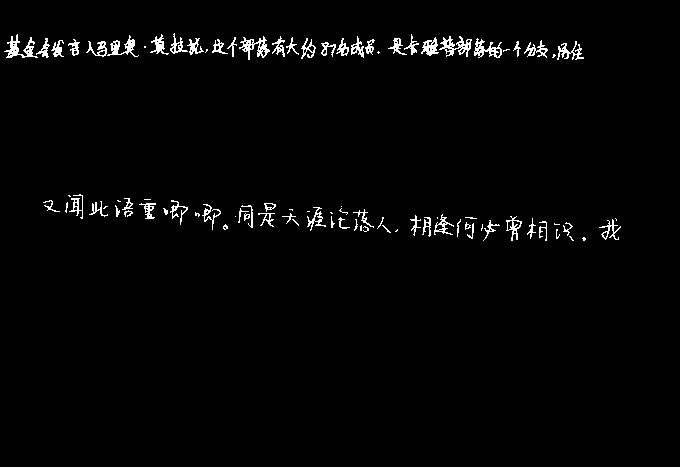 基金会发言人马里奥·莫拉说,这个部落有大约87名成员.是卡雅替部落的一个分支,居住
又闻此语重唧唧。同是天涯沦落人,相逢何必曾相识。我